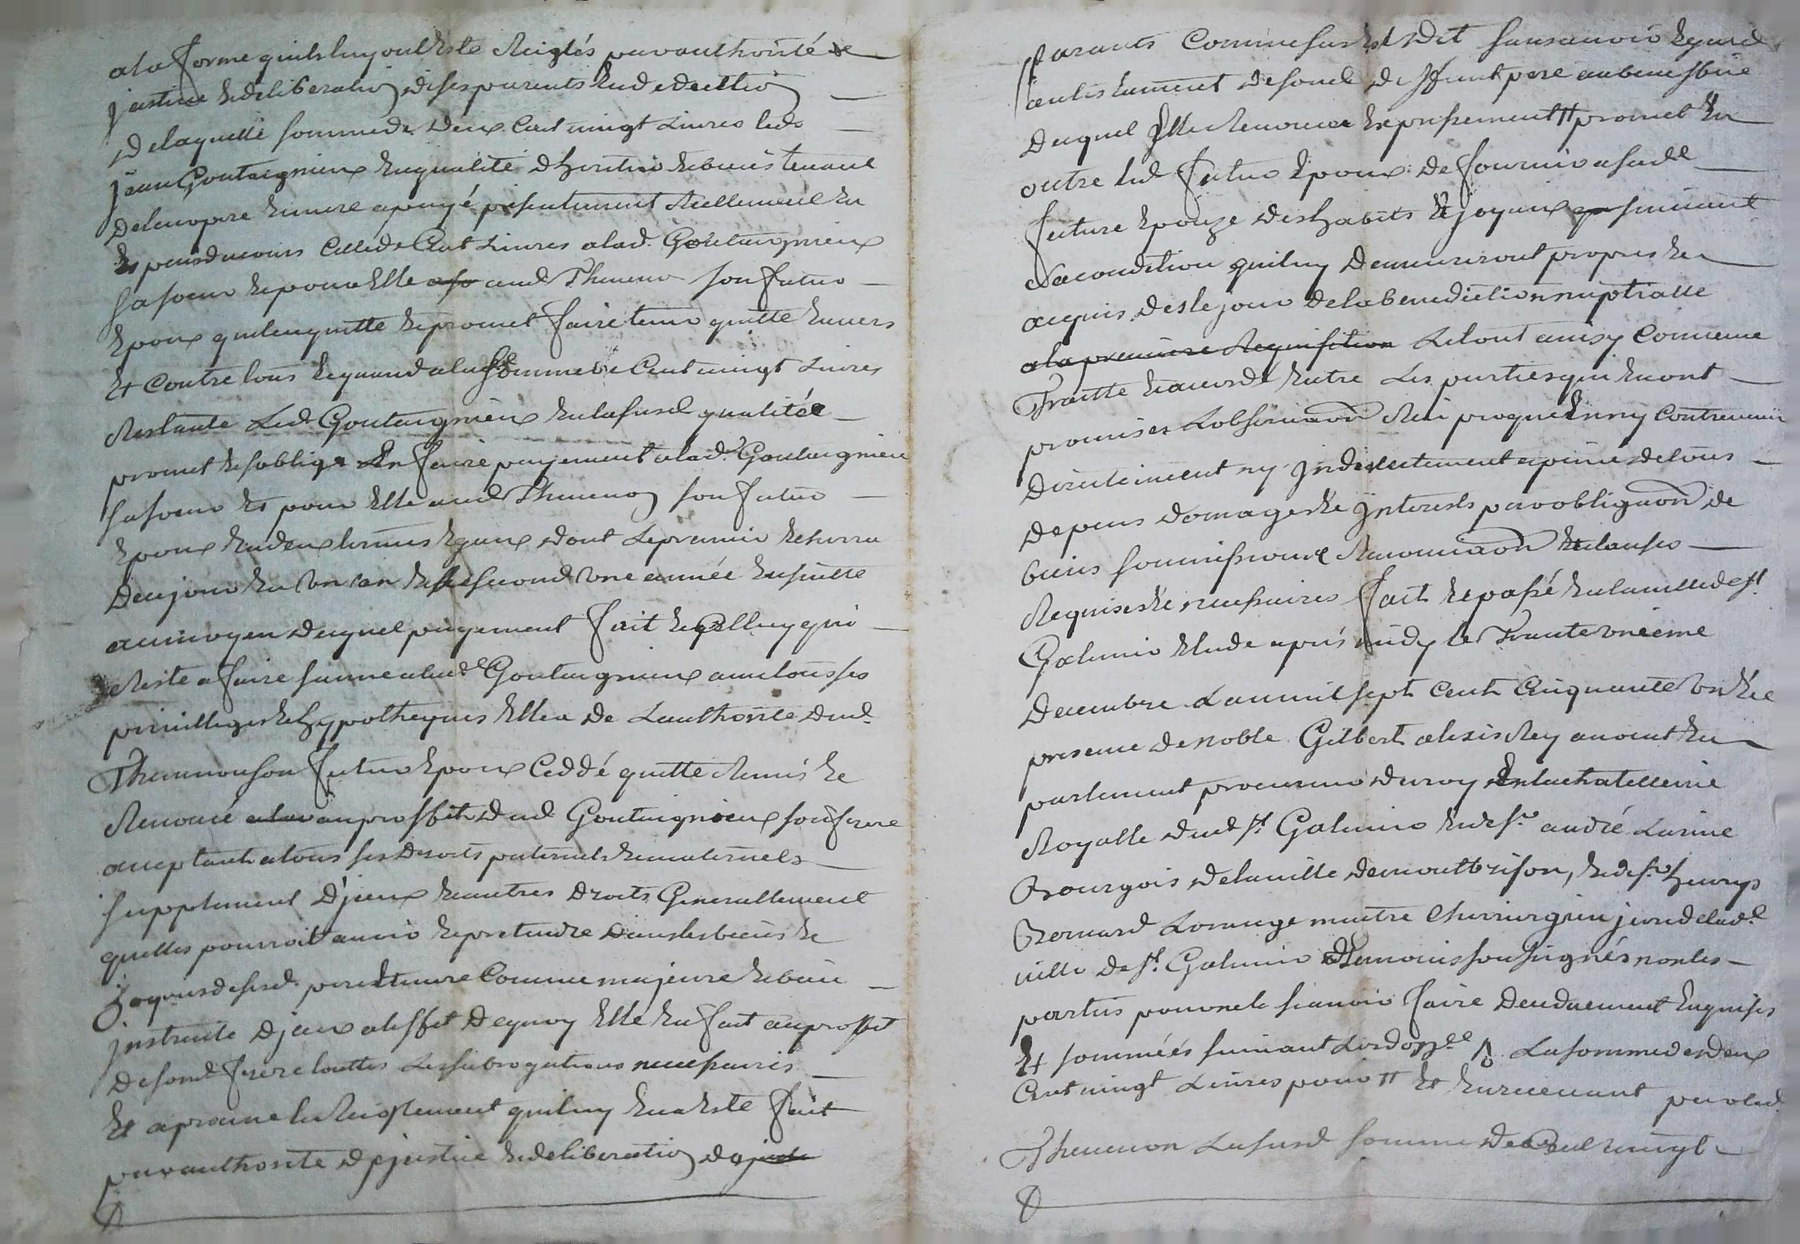 a la forme quils luy ont Este Reiglés par authorité de
justice & deliberation de ses parents & de dellion
De laquelle somme de Deux Cent vingt Livres led.
jean Goutaignieux En qualité d'heritier & biens tenant
de leur pere & mere a payé presentement Reellement En
Especes du cours Celle de Cent Livres a lad. Goutaignieux
sa soeur & pour Elle aud Thevenon son futur
Epoux qui len quitte & promet faire tenir quitte Envers
Et Contre tous & quand a la somme de Cent vingt Livres
Restante Led Goutaignieux En la susd qualitée
promet & soblige den faire payement a lad. Goutaignieux
sa soeur & pour Elle aud Thevenon son futur
Epoux En deux termes Egaux dont Le premier Echerra
De ce jour En Un an & le second Une année Ensuitte
au moyen duquel payement fait & Celluy qui
Reste a faire sur ce a lad Goutaignieux avec tous ses
privilleges & hypotheques Elle a De L'authorité dud.
Thevenon son futur Epoux Ceddé quitte Remis &
Renoncé au proffit dud Goutaignieux son frere
acceptant a tous ses Droits paternels & maternels
supplement D'jceux & autres Droits Generallement
quelles pourroit avoir & pretendre Dans les biens &
hoyries de sesd. pere & mere Comme majeure & bien
jnstruite D'jceux a leffet De quoy Elle En fait au proffit
De sond frere touttes Les subrogations necessaires
Et aprouve le Reiglement quil luy En a Este fait
par authorité De justice & deliberation de
Parants Comme sus Est Dit sans avoir Egard
au testament De sond Deffunt pere au benefice
Duquel Elle Renonce Expressement # promet En
outre led futur Epoux De fournir a sad
future Epouze Des habits & joyaux suivant
sa condition qui luy Demeureront propres &
acquis Des le jour De la benediction nuptialle
a la premiere Requisition Le tout ainsy Convenu
Traitté & accordé Entre Les parties qui En ont
promis Lobservaon Reciproque & ny Contrevenir
Directement ny Jndirectement a peine De tous
Depens Domages & Jnterests par obligaon De
biens soumissions Renonciaon & clauses
Requises & necessaires fait & passé En la ville de St
Galmier Etude aprés midy le Trante unieme
Decembre L'an mil sept Cent Cinquante Un & En
presence De noble Gilbert alexis Rey avocat En
parlement procureur du roy En la chatellenie
Royalle dud St Galmier & de Sr andré Larine
Bourgois De la ville De montbrison, & de Sr
Bernard maitre Chirurgien juré de lad.
ville De St. Galmier Temoins soussignés non les
parties pour ne le sçavoir faire De ce duement Enquises
Et sommées suivant La somme de Deux
Cent vingt Livres pour # Et En recevant par led.
Thevenon La susd somme De Cent vingt